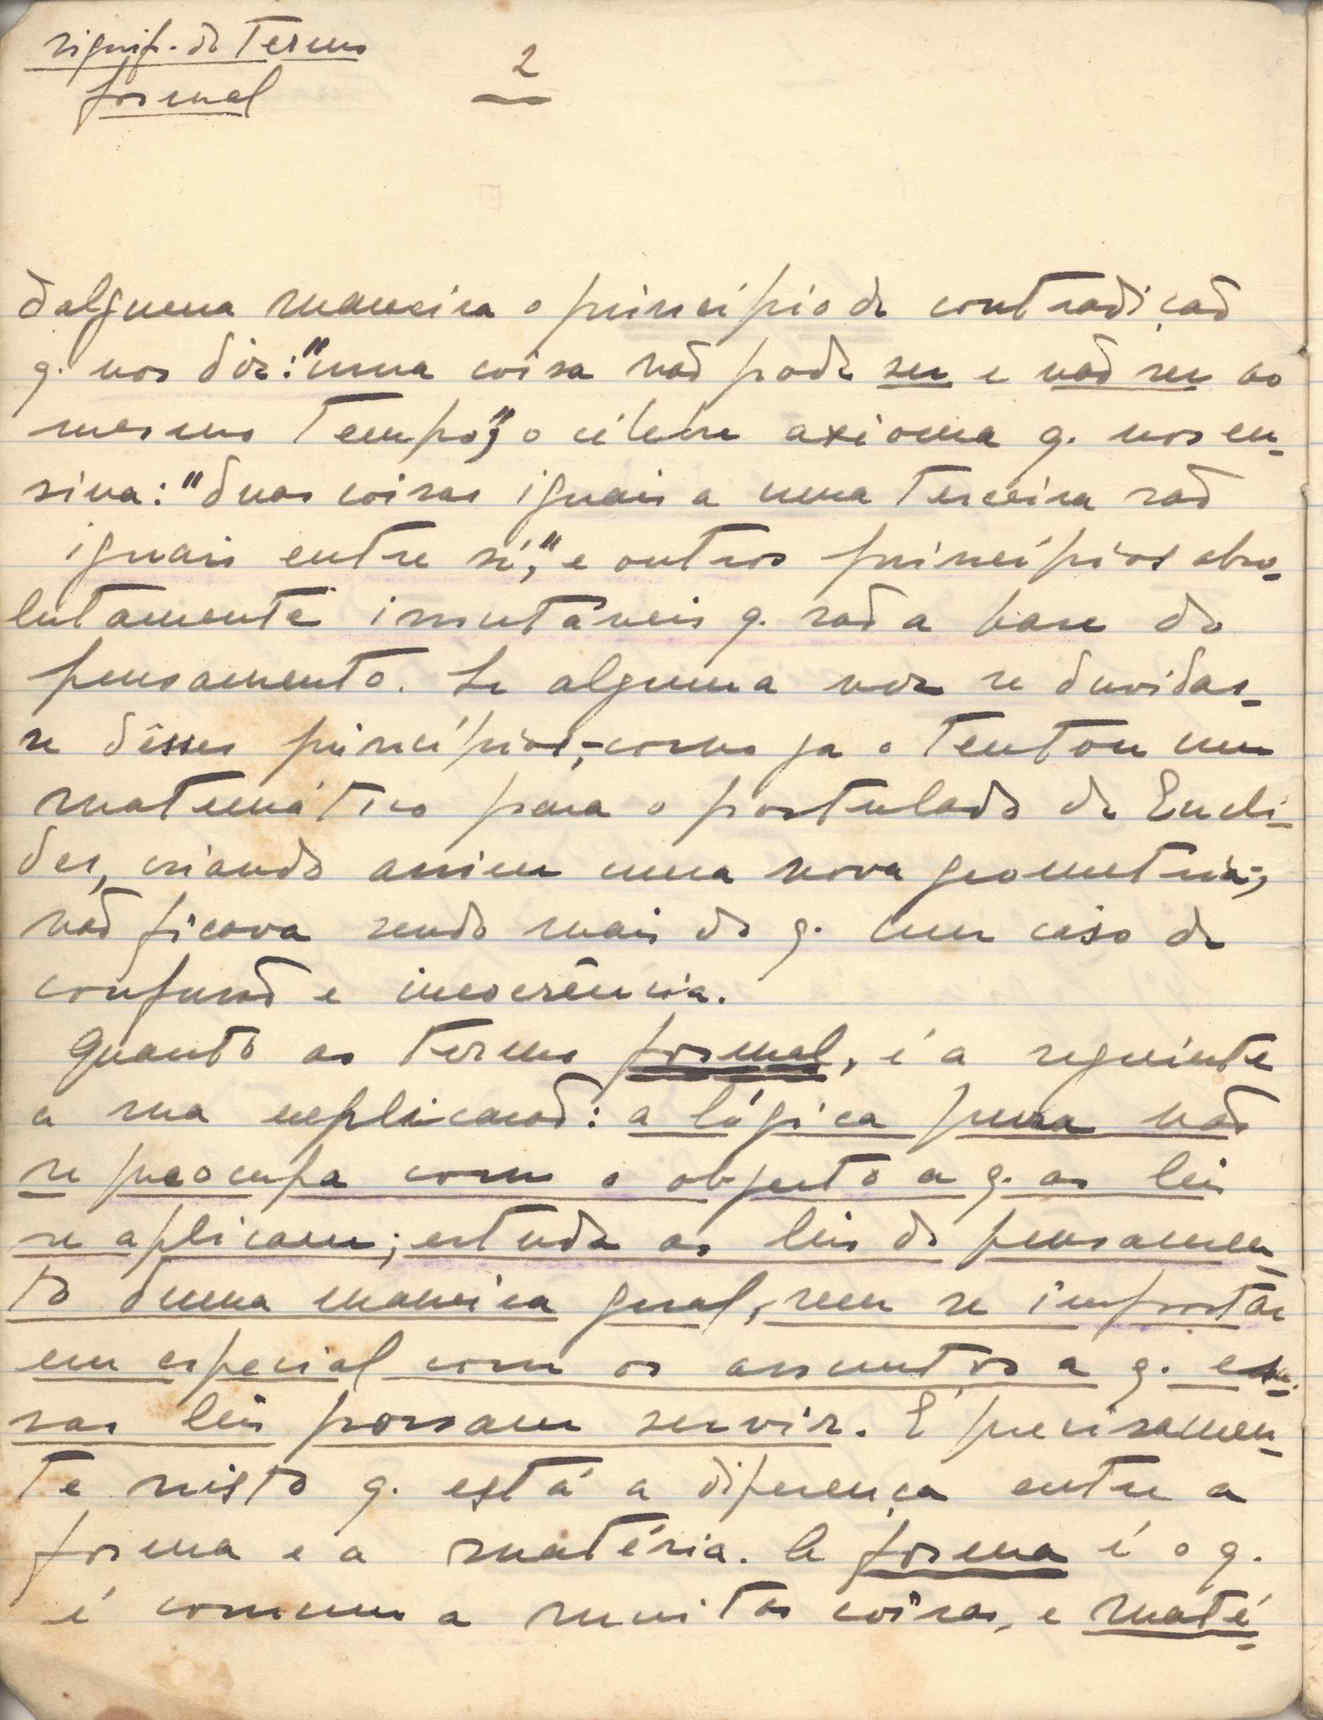 signif. do termo
formal
2
dalguma maneira o princípio de contradição
q. nos diz: "uma coisa não pode ser e não ser ao
mesmo tempo", o célebre axioma q. nos en-
sina: "duas coisas iguais a uma terceira são
iguais entre si", e outros princípios abso-
lutamente imutáveis q. são a base do
pensamento. Se alguma vez se duvidas-
se dêsses princípios,-como ja o tentou um
matemático para o postulado de Eucli-
des, criando assim uma nova geometria-,
não ficava sendo mais do q. um caso de
confusão e incoerência.
Quanto ao termo formal, é a seguinte
a sua explicacão: a lógica pura não
se preocupa com o objecto a q. as leis
se aplicam; estuda as leis do pensamen-
to duma maneira geral, sem se importar
em especial com os assuntos a q. es-
sas leis possam servir. É precisamen-
te nisto q. está a diferença entre a
forma e a matéria. A forma é o q.
é comum a muitas coisas, e maté-